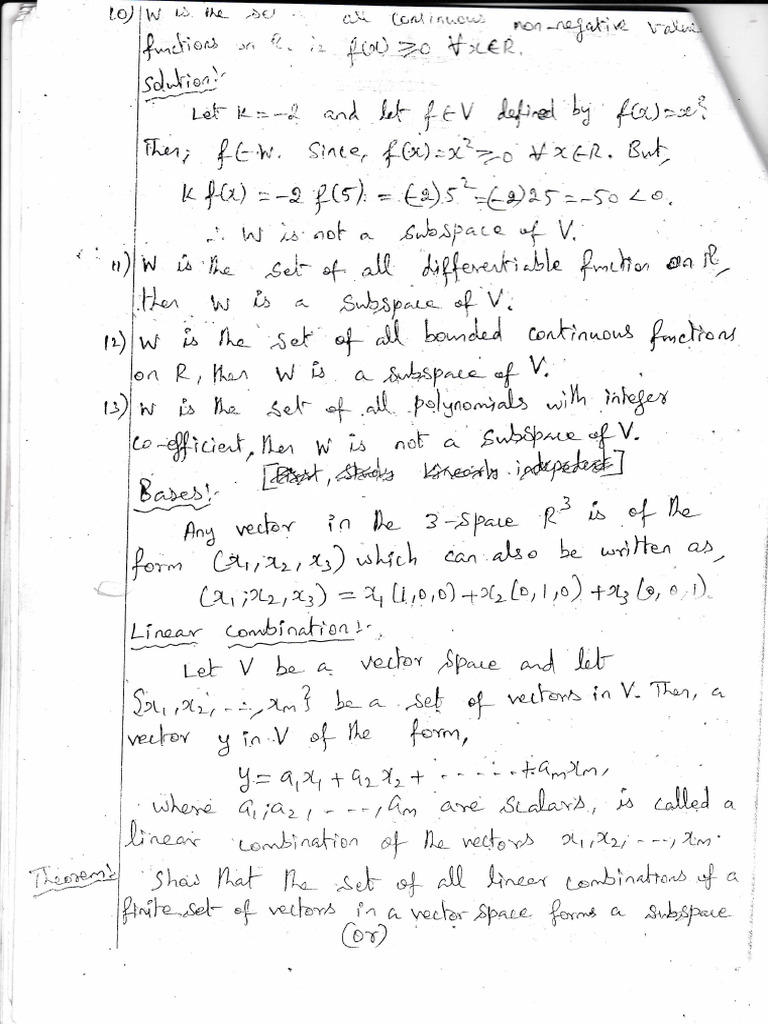 10) W is the set all continuous non-negative value
functions on R. is f(x) ≥ 0 ∀x∈R.
Solution:-
Let K = -2 and let f ∈ V defined by f(x) = x².
Then, f ∈ W. Since, f(x) = x² ≥ 0 ∀ x ∈ R. But,
K f(x) = -2 f(5) = (-2)5² = (-2)25 = -50 < 0.
∴ W is not a subspace of V.
11) W is the set of all differentiable function on R,
then W is a subspace of V.
12) W is the set of all bounded continuous functions
on R, then W is a subspace of V.
13) W is the set of all polynomials with integer
co-efficient, then W is not a subspace of V.
Bases:-
Any vector in the 3-space R³ is of the
form (x₁, x₂, x₃) which can also be written as,
(x₁, x₂, x₃) = x₁(1,0,0) + x₂(0,1,0) + x₃(0,0,1).
Linear Combination:-
Let V be a vector space and let
{x₁, x₂, ..., xₘ} be a set of vectors in V. Then, a
vector y in V of the form,
y = a₁x₁ + a₂x₂ + ...... + aₘxₘ,
where a₁, a₂, ---, aₘ are scalars, is called a
linear combination of the vectors x₁, x₂, ---, xₘ.
Theorem:- Show that the set of all linear combinations of a
finite set of vectors in a vector space forms a subspace
(or)